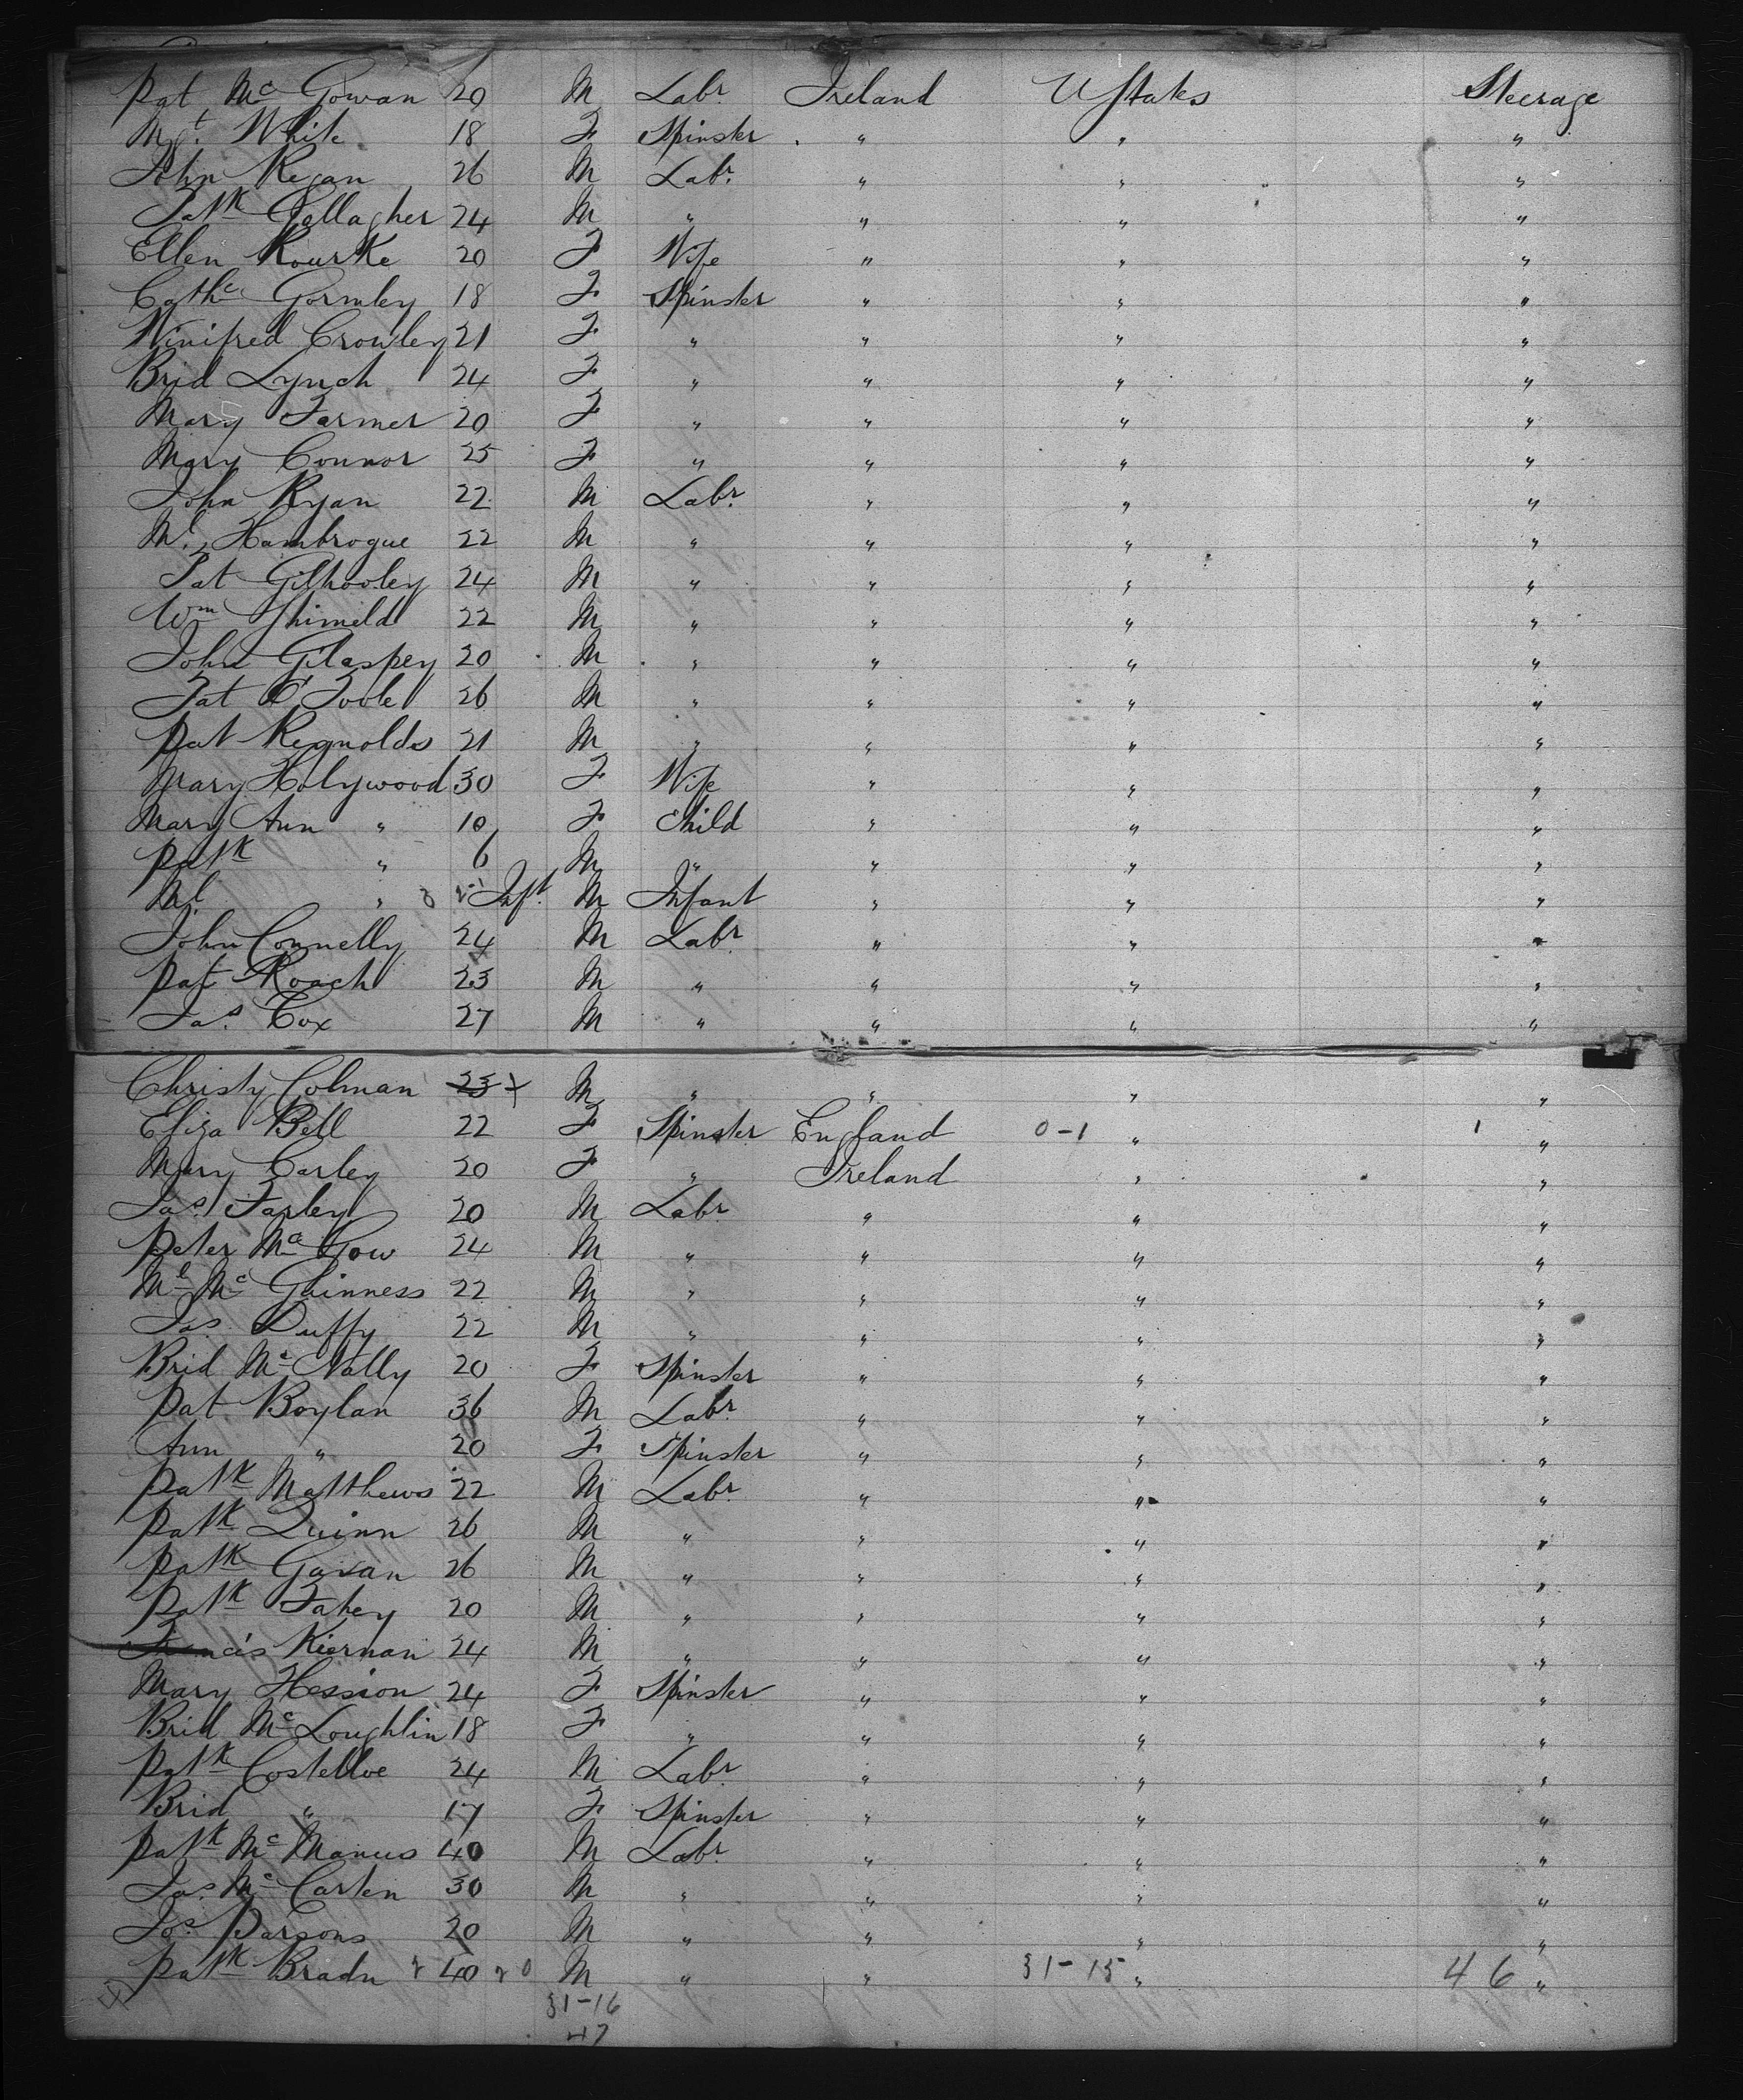 Pat Mc Gowan 20 M Labr. Ireland U States Steerage
Mgt. White 18 F Spinster " " "
John Regan 26 M Labr. " " "
Patk Gallagher 24 M " " " "
Ellen Rourke 20 F Wife " " "
Cathe Gormley 18 F Spinster " " "
Winifred Crowley 21 F " " " "
Brid Lynch 24 F " " " "
Mary Farmer 20 F " " " "
Mary Connor 25 F " " " "
John Ryan 22 M Labr. " " "
Ml. Hambrogue 22 M " " " "
Pat Gilhooley 24 M " " " "
Wm Shimeld 22 M " " " "
John Gilaspey 20 M " " " "
Pat O'Toole 26 M " " " "
Pat Reynolds 21 M " " " "
Mary Holywood 30 F Wife " " "
Mary Ann " 10 F Child " " "
Patk " 6 M " " " "
Ml. " Inft. M Infant " " "
John Connelly 24 M Labr. " " "
Pat Roach 23 M " " " "
Jas. Cox 27 M " " " "
Christy Colman 23 + M " " " "
Eliza Bell 22 F Spinster England 0-1 " 1 "
Mary Carley 20 F " Ireland " "
Jas. Farley 20 M Labr. " " "
Peter Mc Gow 24 M " " " "
Ml Mc Guinness 22 M " " " "
Jas. Duffy 22 M " " " "
Brid Mc Nally 20 F Spinster " " "
Pat Boylan 36 M Labr. " " "
Ann " 20 F Spinster " " "
Patk Matthews 22 M Labr. " " "
Patk Quinn 26 M " " " "
Patk Gavan 26 M " " " "
Patk Fahey 20 M " " " "
Francis Kiernan 24 M " " " "
Mary Hession 24 F Spinster " " "
Brid Mc Loughlin 18 F " " " "
Patk Costelloe 24 M Labr. " " "
Brid " 17 F Spinster " " "
Patk Mc Manus 40 M Labr. " " "
Jas. Mc Carten 30 M " " " "
Jos. Parsons 20 M " " " "
Patk Bradn 40 M " " 31-15 " 46 "
31-16
47